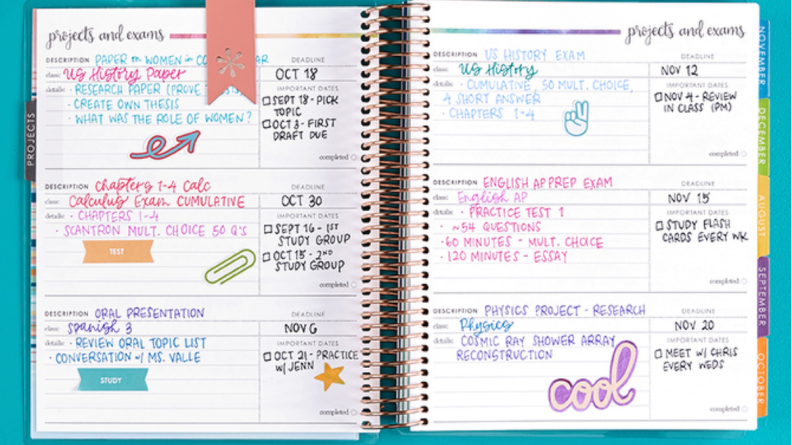 projects and exams
DESCRIPTION PAPER on WOMEN in
DEADLINE
class: US History Paper
OCT 18
details: · RESEARCH PAPER (PROVE
IMPORTANT DATES
· CREATE OWN THESIS
SEPT 18 - PICK
TOPIC
· WHAT WAS THE ROLE OF WOMEN?
OCT 3 - FIRST
DRAFT DUE
completed
DESCRIPTION Chapters 1-4 Calc
DEADLINE
class: Calculus Exam CUMULATIVE
OCT 30
details: · CHAPTERS 1-4
IMPORTANT DATES
· SCANTRON MULT. CHOICE 50 Q'S
SEPT 16 - 1ST
STUDY GROUP
TEST
OCT 15 - 2ND
STUDY GROUP
completed
DESCRIPTION ORAL PRESENTATION
DEADLINE
class: Spanish 3
NOV 6
details: · REVIEW ORAL TOPIC LIST
IMPORTANT DATES
· CONVERSATION w/ MS. VALLE
OCT 21 - PRACTICE
W/ JENN
STUDY
completed
PROJECTS
projects and exams
DESCRIPTION US HISTORY EXAM
DEADLINE
class: US History
NOV 12
details: · CUMULATIVE, 50 MULT. CHOICE,
IMPORTANT DATES
4 SHORT ANSWER
NOV 4 - REVIEW
IN CLASS (PM)
· CHAPTERS 1-4
completed
DESCRIPTION ENGLISH AP PREP EXAM
DEADLINE
class: English AP
NOV 15
details: · PRACTICE TEST 1
IMPORTANT DATES
· ~54 QUESTIONS
STUDY FLASH
CARDS EVERY WK
· 60 MINUTES - MULT. CHOICE
· 120 MINUTES - ESSAY
completed
DESCRIPTION PHYSICS PROJECT - RESEARCH
DEADLINE
class: Physics
NOV 20
details: COSMIC RAY SHOWER ARRAY
IMPORTANT DATES
RECONSTRUCTION
MEET W/ CHRIS
EVERY WEDS
cool
completed
NOVEMBER
DECEMBER
AUGUST
SEPTEMBER
OCTOBER